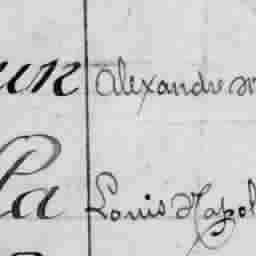 un Alexandre
La Louis Napol